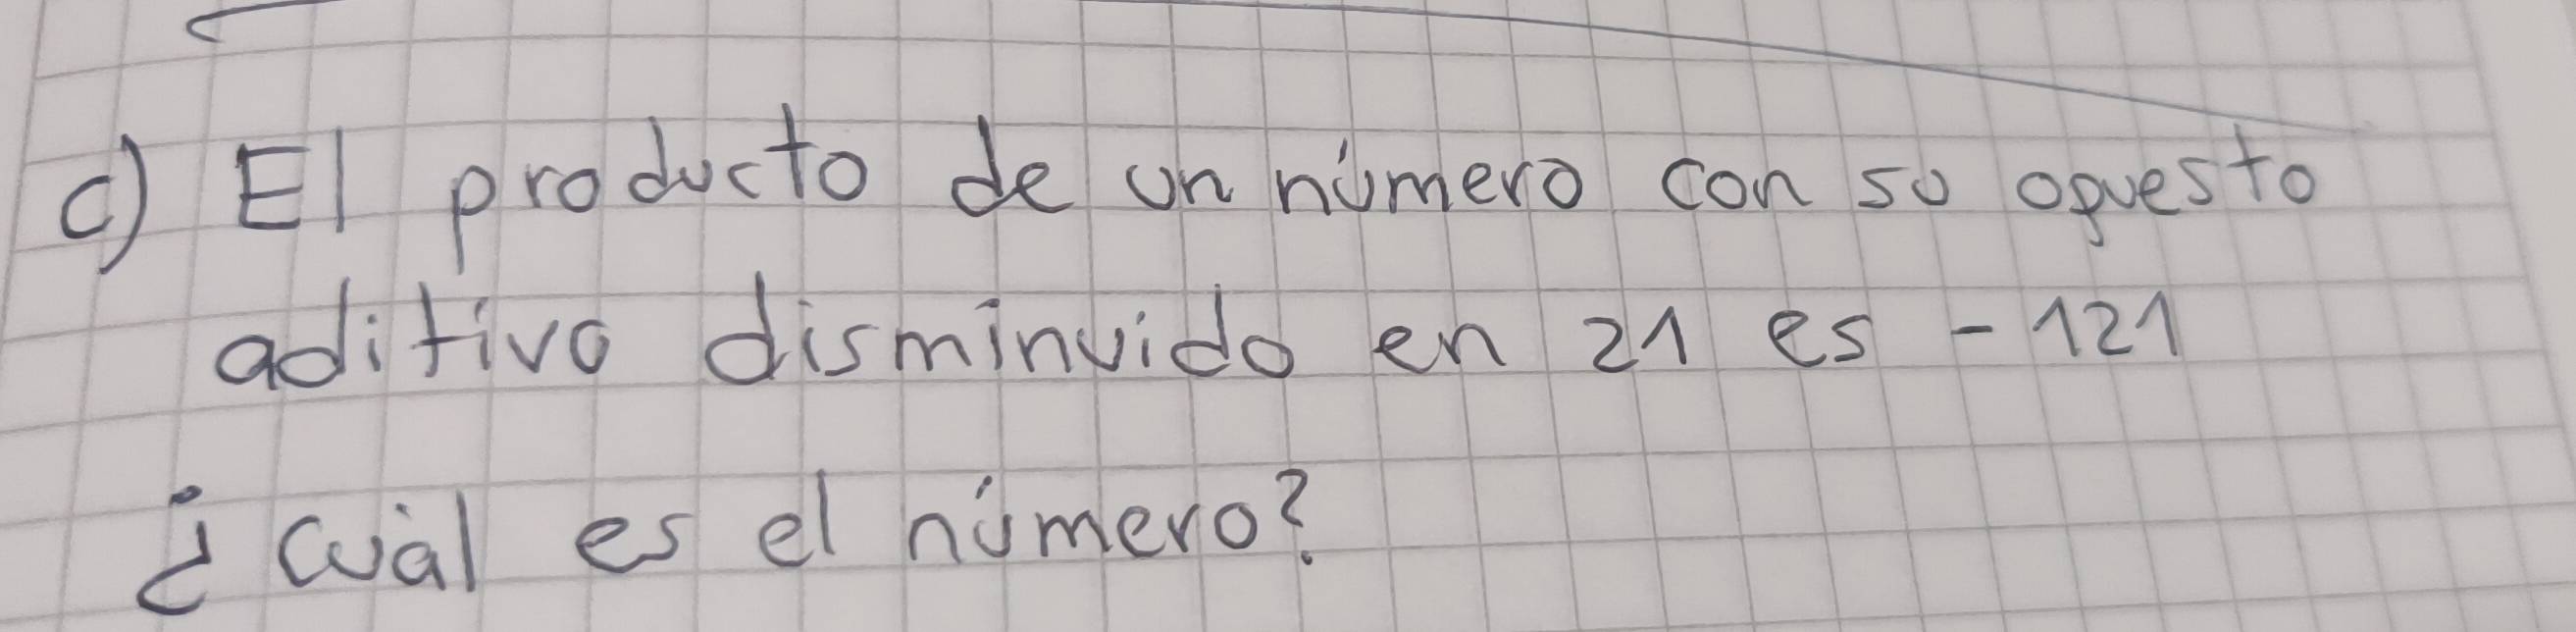 c) El producto de un número con su opuesto
aditivo disminuido en 21 es - 121
¿cuál es el número?